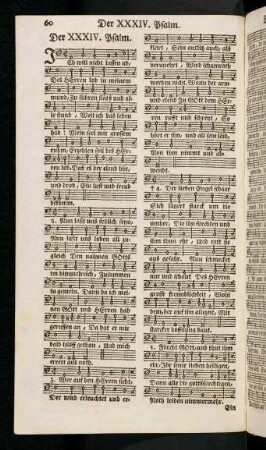 60 Der XXXIV. Psalm.
Der XXXIV. Psalm.
Ich will nicht lassen ab,
Des HErren lob in meinem
mund, Zu führen stäts und al-
le stund, Weil ich das leben
hab: Mein seel mit grossem
ruhm, Erzehlen soll des HErr-
ren lob, Daß es der elend hör,
und drob, Ein lust und freud
bekomm.
2. Nun laßt uns frölich seyn,
Nun laßt uns loben all zu-
gleich Den nahmen GOttes
im himmelreich, Zusammen
in gemein. Dann da ich mei-
nen GOtt und HErren hab
geruffen an, Da hat er mir
bald hülff gethan, Und mich
errett aus noth.
3. Wer auf den HErren sieht,
Der wird erleuchtet und er-
freut, Sein antlitz auch
werden nicht. Wann der arm
und elend Zu GOTT dem HEr-
ren rufft und schreyt, So
hört er ihn, und all sein leid,
Von ihm nimmt und ab-
wendt.
†4. Der lieben Engel schaar
Sich lägert starck um die
Die ihn fürchten
ihm ehr, Und rett sie
aus gefahr. Nun schmecket
nur und schaut Des HErren
grosse freundlichkeit, Wohl
dem, der auf ihn allzeit, Mit
starcker hoffnung baut.
5. Fürcht GOtt, und thut ihm
ehr, Ihr seine lieben heiligen,
Dann alle die gottsförchtigen,
Noth leiden nimmermehr.
Ein